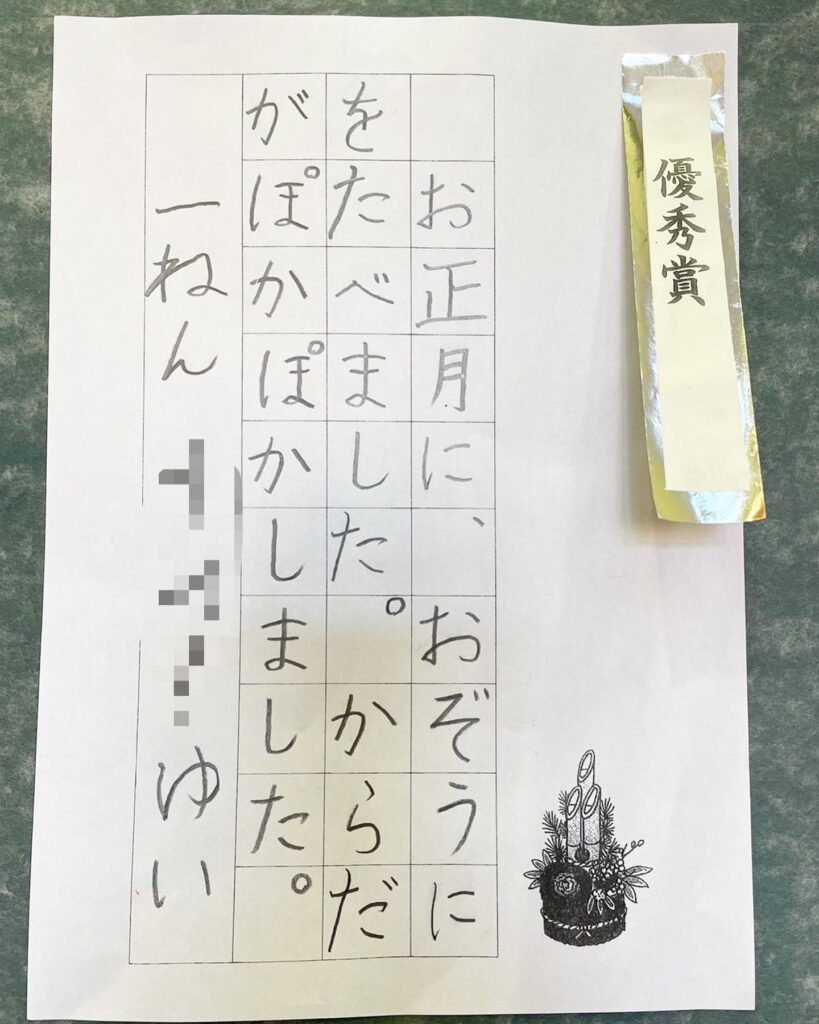 優秀賞
お正月に、おぞうに
をたべました。からだ
がぽかぽかしました。
一ねん ゆい